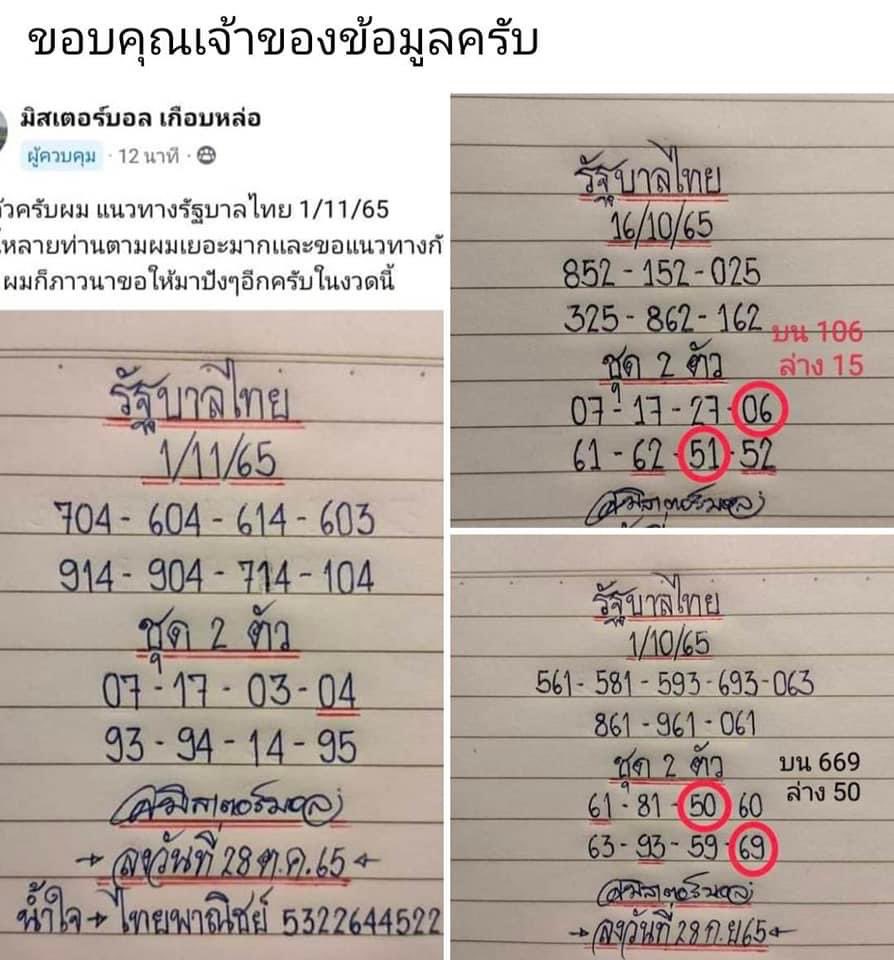 ขอบคุณเจ้าของข้อมูลครับ
มิสเตอร์บอล เกือบหล่อ
ผู้ควบคุม · 12 นาที ·
ครับผม แนวทางรัฐบาลไทย 1/11/65
หลายท่านตามผมเยอะมากและขอแนวทางกั
ผมก็ภาวนาขอให้มาปังๆอีกครับในงวดนี้
รัฐบาลไทย
1/11/65
704 - 604 - 614 - 603
914 - 904 - 714 - 104
ชุด 2 ตัว
07 - 17 - 03 - 04
93 - 94 - 14 - 95
ลงวันที่ 28 ต.ค.65
น้ำใจ → ไทยพาณิชย์ 5322644522
รัฐบาลไทย
16/10/65
852 - 152 - 025
325 - 862 - 162
บน 106
ล่าง 15
ชุด 2 ตัว
07 - 17 - 27 - 06
61 - 62 - 51 - 52
รัฐบาลไทย
1/10/65
561 - 581 - 593 - 693 - 063
861 - 961 - 061
ชุด 2 ตัว
บน 669
ล่าง 50
61 - 81 - 50 60
63 - 93 - 59 - 69
ลงวันที่ 28 ก.ย65